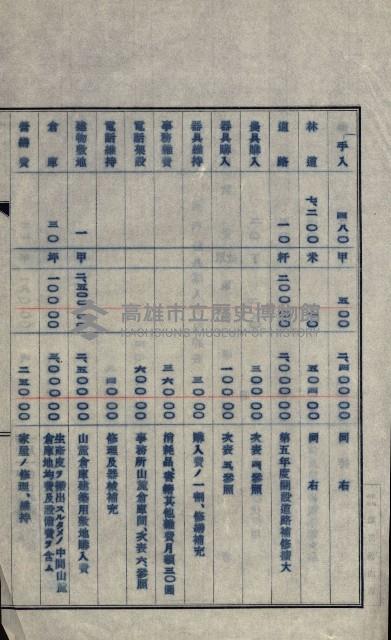 手入 四八〇甲 五〇〇 二、四〇〇〇〇 同右
林道 七、二〇〇米 五〇四〇〇 同右
道路 一〇粁 二、〇〇〇〇〇 第五年度開設道路補修擴大
農具購入 三〇〇〇 次表四參照
器具購入 一〇〇〇〇 次表五參照
器具維持 三〇〇〇 購入費ノ一割、修繕補充
事務雜費 三六〇〇〇 消耗品、書籍其他雜費月額三〇圓
電話架設 六〇〇〇〇 事務所山元倉庫間、次表六參照
電話維持 修理及器械補充
建物敷地 一甲 二、五〇〇 二、五〇〇〇〇 山元倉庫建築用敷地購入費
倉庫 三〇坪 一〇〇〇〇 三、〇〇〇〇〇 生產皮ヲ搬出スルタメノ中間山元
倉庫地均費及設備費ヲ含ム
營繕費 二五〇〇〇 家屋ノ修理、維持
高雄市立歷史博物館
KAOHSIUNG MUSEUM OF HISTORY